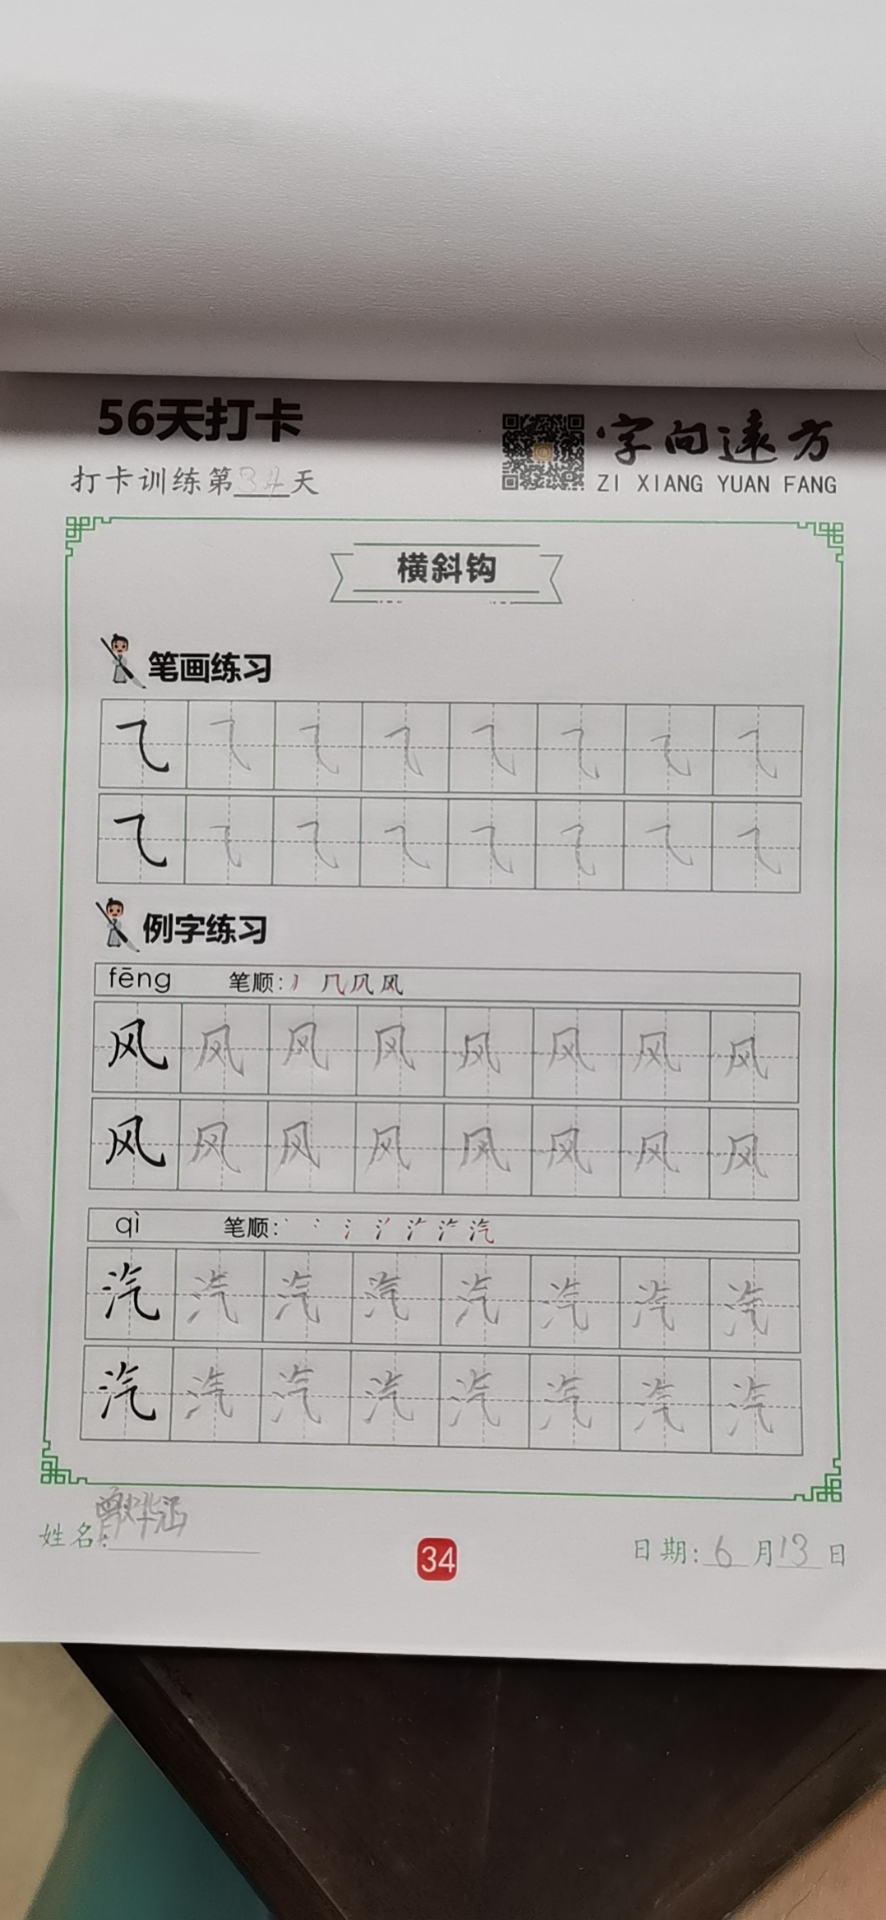 56天打卡
字向远方
打卡训练第34天
ZI XIANG YUAN FANG
横斜钩
笔画练习
⺄ ⺄ ⺄ ⺄ ⺄ ⺄ ⺄ ⺄
⺄ ⺄ ⺄ ⺄ ⺄ ⺄ ⺄ ⺄
例字练习
fēng 笔顺: 丿 ⺇ 风
风 风 风 风 风 风 风 风
风 风 风 风 风 风 风 风
qì 笔顺: 丶 冫 氵 汽
汽 汽 汽 汽 汽 汽 汽 汽
汽 汽 汽 汽 汽 汽 汽 汽
姓名:
34
日期: 6 月 13 日